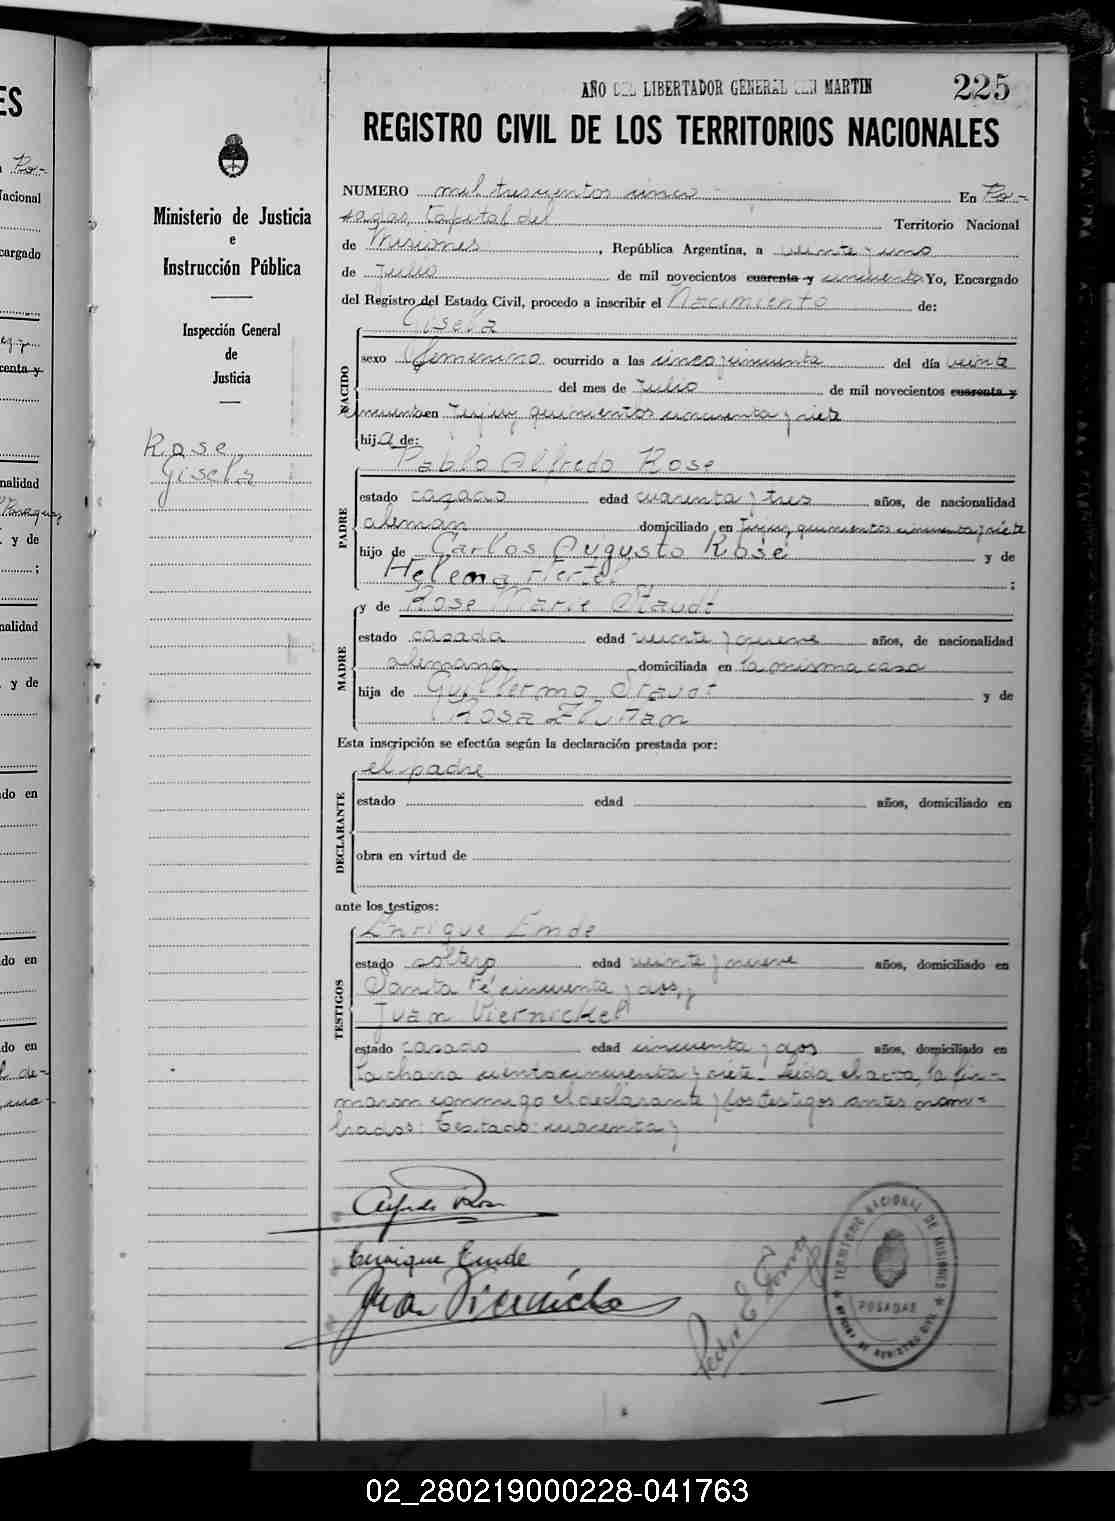 ES
AÑO DEL LIBERTADOR GENERAL SAN MARTIN
225
REGISTRO CIVIL DE LOS TERRITORIOS NACIONALES
Ministerio de Justicia
e
Instrucción Pública
Inspección General
de
Justicia
Rose
Gisela
NUMERO mil trescientos cinco En Po-
sadas, Capital del Territorio Nacional
de Misiones, República Argentina, a veinte y uno
de Julio de mil novecientos cuarenta y cincuenta Yo, Encargado
del Registro del Estado Civil, procedo a inscribir el Nacimiento de:
NACIDO
Gisela
sexo femenino ocurrido a las cinco y cincuenta del día veinte
del mes de Julio de mil novecientos cuarenta y
cincuenta en Jujuy quinientos cincuenta y siete
hija de:
PADRE
Pablo Alfredo Rose
estado casado edad cuarenta y tres años, de nacionalidad
alemán domiciliado en Jujuy, quinientos cincuenta y siete
hijo de Carlos Augusto Rose y de
Helena Hertel ;
MADRE
y de Rose Marie Staudt
estado casada edad veinte y nueve años, de nacionalidad
alemana, domiciliada en la misma casa
hija de Guillermo Staudt y de
Rosa
Esta inscripción se efectúa según la declaración prestada por:
DECLARANTE
el padre
estado edad años, domiciliado en
obra en virtud de
ante los testigos:
TESTIGOS
Enrique Emde
estado soltero edad veinte y nueve años, domiciliado en
Santa Fé cincuenta y dos, y
Juan Viernickel
estado casado edad cincuenta y dos años, domiciliado en
la chacra ciento cincuenta y siete. Leída el acta, la fir-
maron conmigo el declarante y los testigos antes nom-
brados: Testado: cuarenta y
Alfredo Rose
Enrique Emde
Juan Viernickel
TERRITORIO NACIONAL DE MISIONES
POSADAS
OFICINA DE REGISTRO CIVIL
02_280219000228-041763